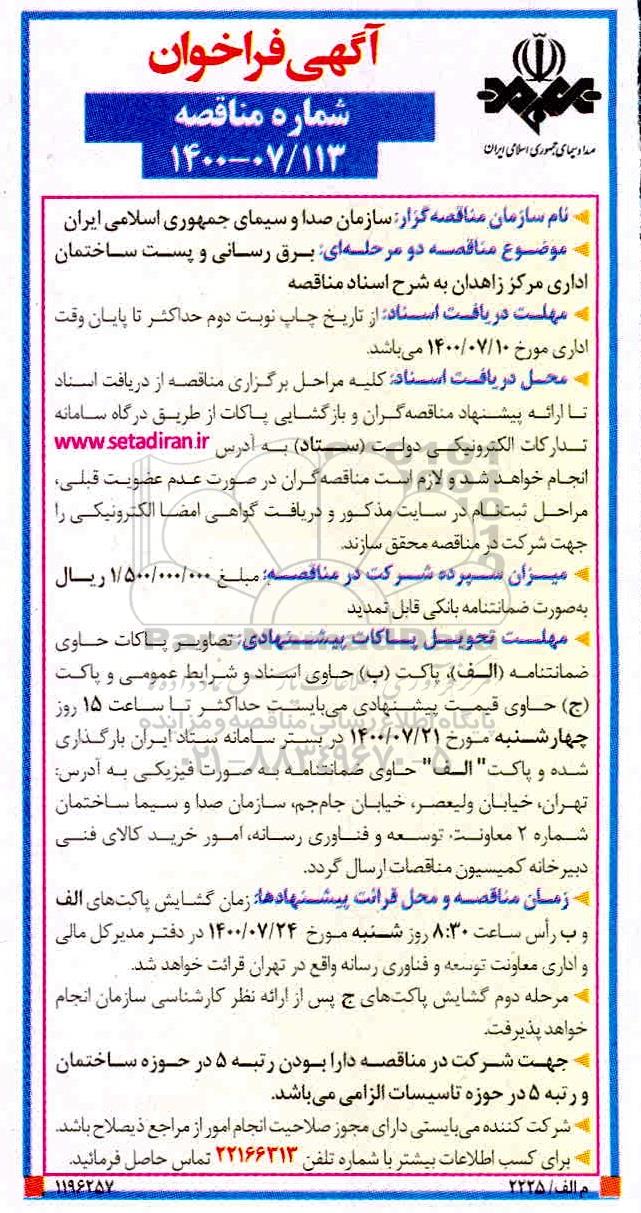 آگهی فراخوان
شماره مناقصه
۱۴۰۰-۰۷/۱۱۳
صدا و سیمای جمهوری اسلامی ایران
نام سازمان مناقصه‌گزار: سازمان صدا و سیمای جمهوری اسلامی ایران
موضوع مناقصه دو مرحله‌ای: برق رسانی و پست ساختمان
اداری مرکز زاهدان به شرح اسناد مناقصه
مهلت دریافت اسناد: از تاریخ چاپ نوبت دوم حداکثر تا پایان وقت
اداری مورخ ۱۴۰۰/۰۷/۱۰ می‌باشد.
محل دریافت اسناد: کلیه مراحل برگزاری مناقصه از دریافت اسناد
تا ارائه پیشنهاد مناقصه‌گران و بازگشایی پاکات از طریق درگاه سامانه
تدارکات الکترونیکی دولت (ستاد) به آدرس www.setadiran.ir
انجام خواهد شد و لازم است مناقصه‌گران در صورت عدم عضویت قبلی،
مراحل ثبت‌نام در سایت مذکور و دریافت گواهی امضا الکترونیکی را
جهت شرکت در مناقصه محقق سازند.
میزان سپرده شرکت در مناقصه: مبلغ ۱/۵۰۰/۰۰۰/۰۰۰ ریال
به‌صورت ضمانتنامه بانکی قابل تمدید
مهلت تحویل پاکات پیشنهادی: تصاویر پاکات حاوی
ضمانتنامه (الف)، پاکت (ب) حاوی اسناد و شرایط عمومی و پاکت
(ج) حاوی قیمت پیشنهادی می‌بایست حداکثر تا ساعت ۱۵ روز
چهارشنبه مورخ ۱۴۰۰/۰۷/۲۱ در بستر سامانه ستاد ایران بارگذاری
شده و پاکت "الف" حاوی ضمانتنامه به صورت فیزیکی به آدرس:
تهران، خیابان ولیعصر، خیابان جام‌جم، سازمان صدا و سیما ساختمان
شماره ۲ معاونت توسعه و فناوری رسانه، امور خرید کالای فنی
دبیرخانه کمیسیون مناقصات ارسال گردد.
زمان مناقصه و محل قرائت پیشنهادها: زمان گشایش پاکت‌های الف
و ب رأس ساعت ۸:۳۰ روز شنبه مورخ ۱۴۰۰/۰۷/۲۴ در دفتر مدیرکل مالی
و اداری معاونت توسعه و فناوری رسانه واقع در تهران قرائت خواهد شد.
مرحله دوم گشایش پاکت‌های ج پس از ارائه نظر کارشناسی سازمان انجام
خواهد پذیرفت.
جهت شرکت در مناقصه دارا بودن رتبه ۵ در حوزه ساختمان
و رتبه ۵ در حوزه تاسیسات الزامی می‌باشد.
شرکت کننده می‌بایستی دارای مجوز صلاحیت انجام امور از مراجع ذیصلاح باشد.
برای کسب اطلاعات بیشتر با شماره تلفن ۲۲۱۶۶۳۱۳ تماس حاصل فرمائید.
م الف/ ۲۲۲۵
۱۱۹۶۲۵۷
پایگاه اطلاع رسانی مناقصه و مزایده
۰۲۱-۸۸۳۴۹۶۷۰-۵